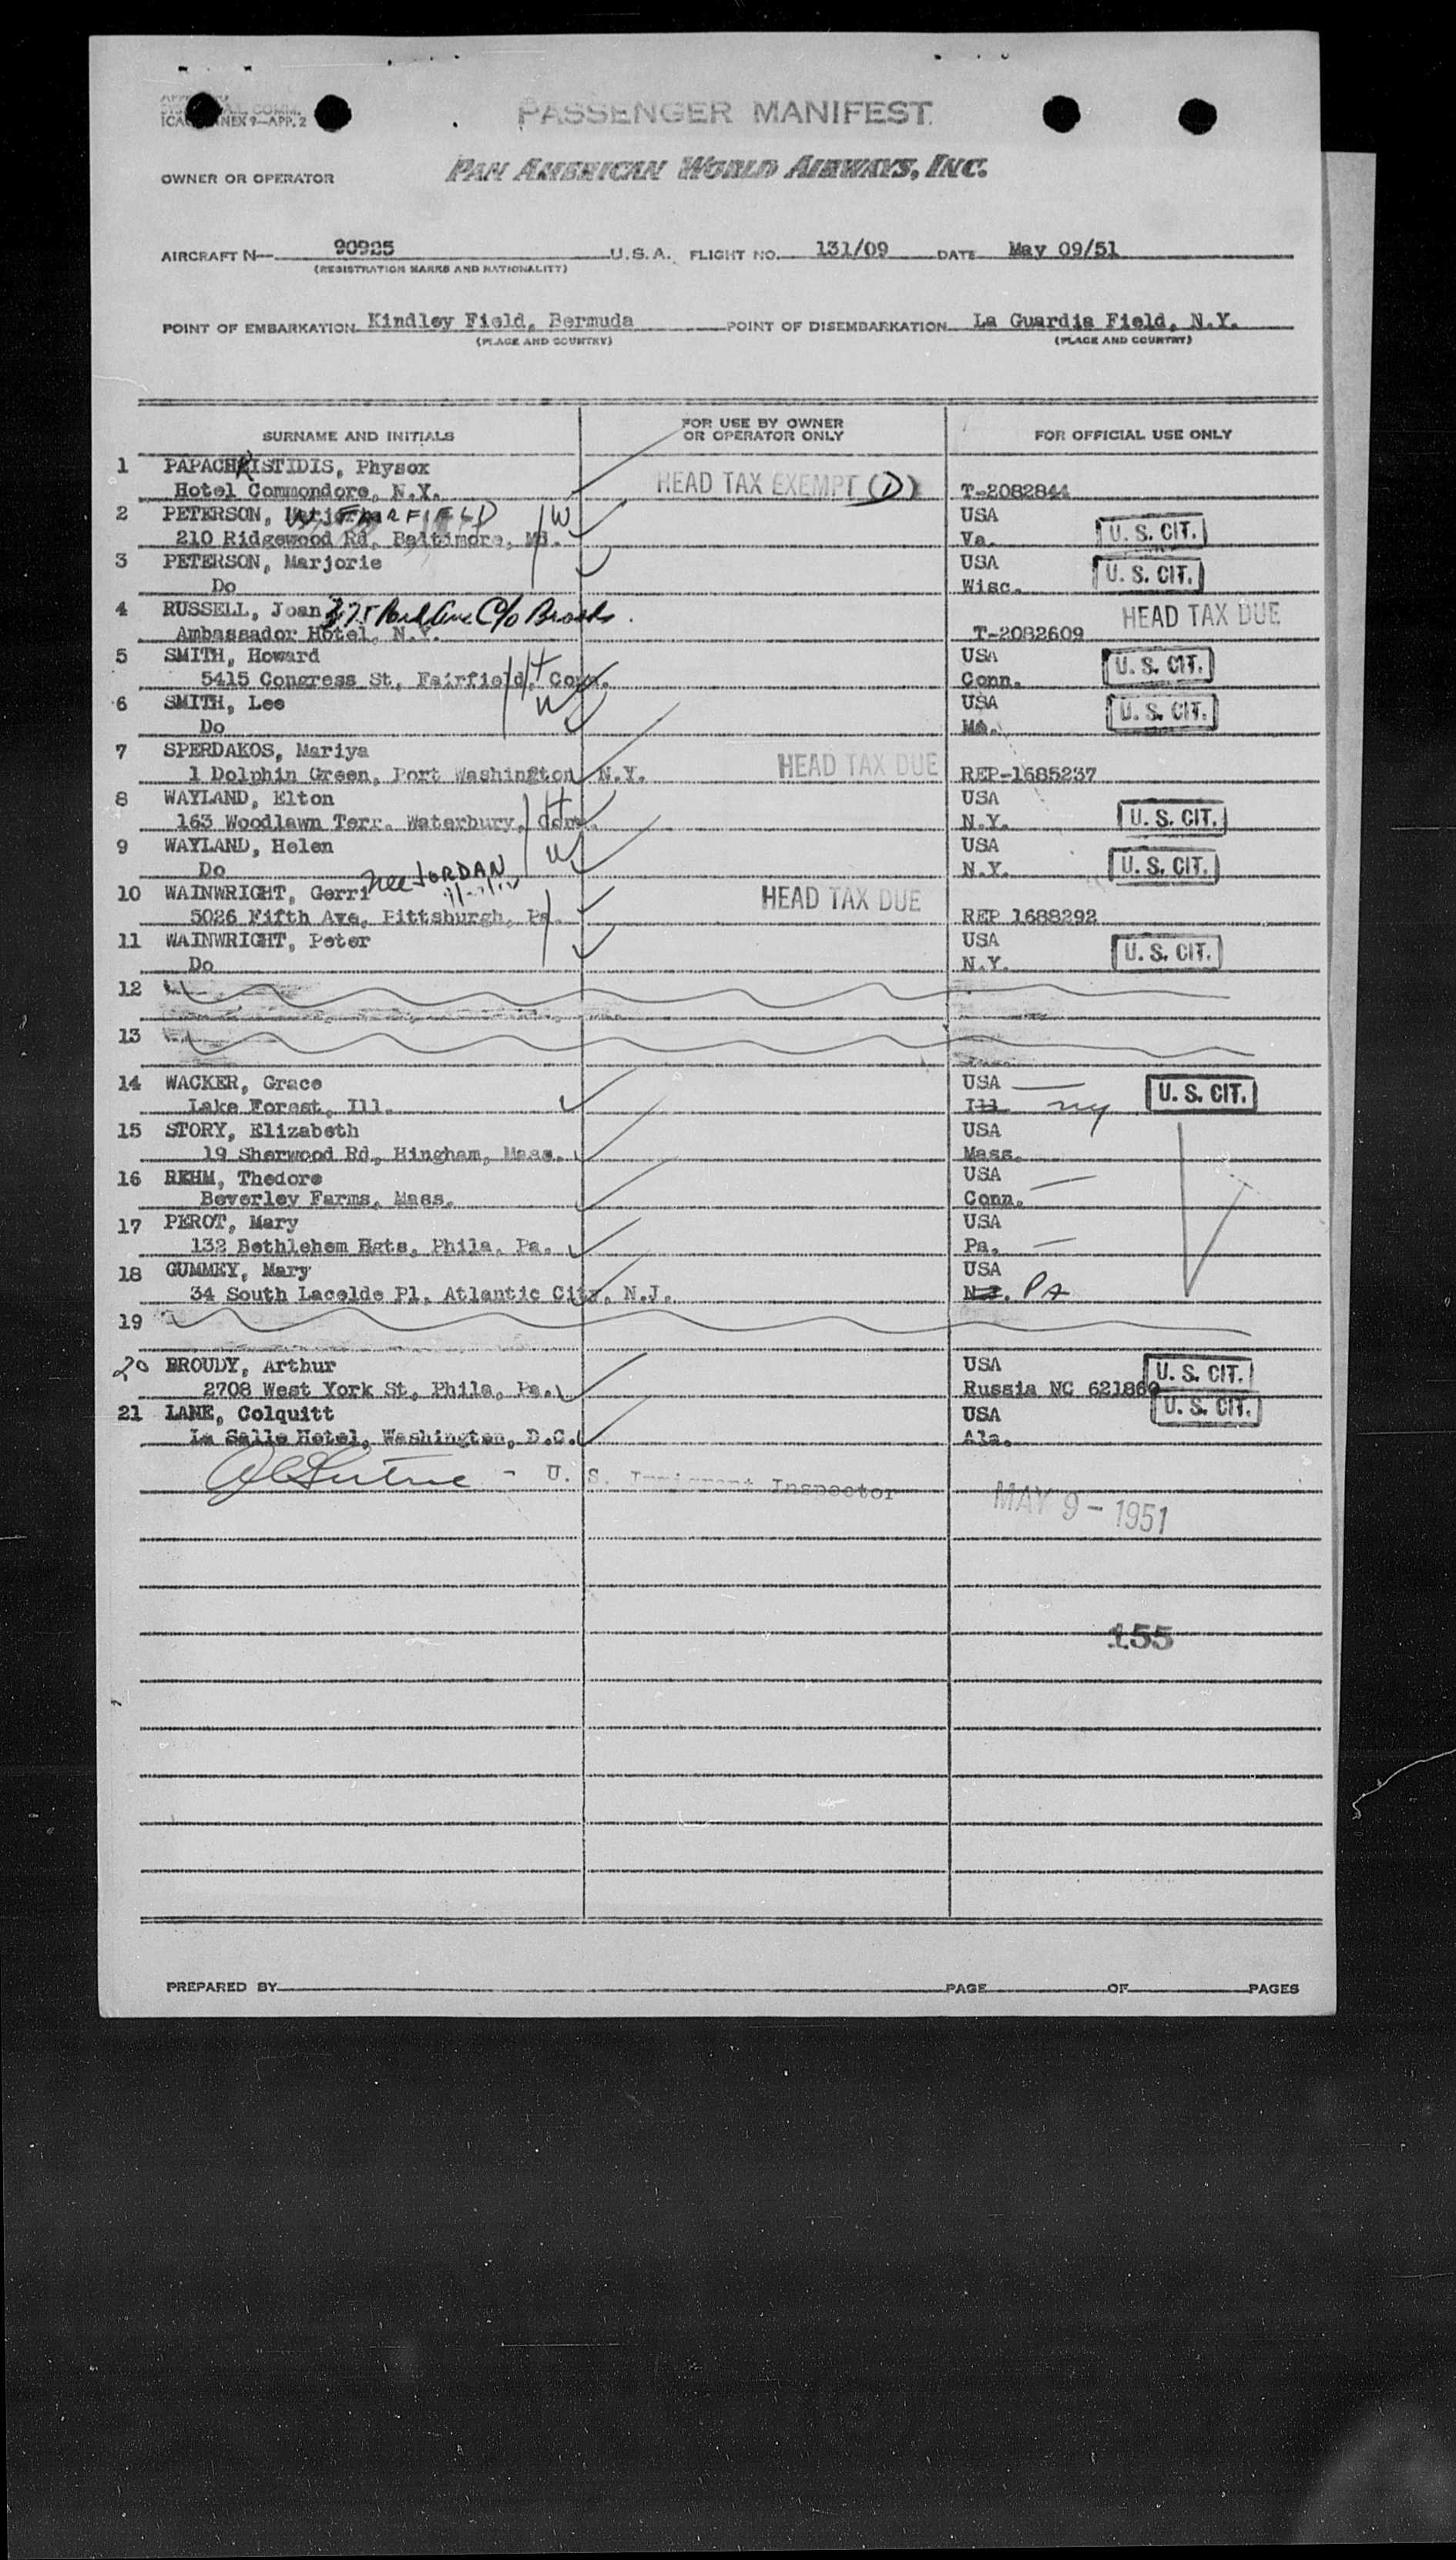 ICA ANNEX 9—APP. 2
PASSENGER MANIFEST
OWNER OR OPERATOR PAN AMERICAN WORLD AIRWAYS, INC.
AIRCRAFT N— 90925 U.S.A. FLIGHT NO. 131/09 DATE May 09/51
(REGISTRATION MARKS AND NATIONALITY)
POINT OF EMBARKATION Kindley Field, Bermuda POINT OF DISEMBARKATION La Guardia Field, N.Y.
(PLACE AND COUNTRY) (PLACE AND COUNTRY)
SURNAME AND INITIALS FOR USE BY OWNER OR OPERATOR ONLY FOR OFFICIAL USE ONLY
1 PAPACHRISTIDIS, Physox
Hotel Commondore, N.Y. HEAD TAX EXEMPT (D) T-2082844
2 PETERSON, W. FAIRFIELD W USA
210 Ridgewood Rd, Baltimore, Md. Va. U. S. CIT.
3 PETERSON, Marjorie USA
Do Wisc. U. S. CIT.
4 RUSSELL, Joan 375 Park Ave C/o Brooks HEAD TAX DUE
Ambassador Hotel, N.Y. T-2082609
5 SMITH, Howard H USA
5415 Congress St, Fairfield, Conn. Conn. U. S. CIT.
6 SMITH, Lee W USA
Do U. S. CIT.
7 SPERDAKOS, Mariya
1 Dolphin Green, Port Washington N.Y. HEAD TAX DUE REP-1685237
8 WAYLAND, Elton H USA
163 Woodlawn Terr. Waterbury, Conn. N.Y. U. S. CIT.
9 WAYLAND, Helen W USA
Do N.Y. U. S. CIT.
10 WAINWRIGHT, Gerri nee JORDAN
5026 Fifth Ave, Pittsburgh, Pa. HEAD TAX DUE REP 1688292
11 WAINWRIGHT, Peter USA
Do N.Y. U. S. CIT.
12
13
14 WACKER, Grace USA
Lake Forest, Ill. Ill ny U. S. CIT.
15 STORY, Elizabeth USA
19 Sherwood Rd, Hingham, Mass. Mass.
16 REHM, Thedore USA
Beverley Farms, Mass. Conn.
17 PEROT, Mary USA
132 Bethlehem Hgts, Phila, Pa. Pa.
18 GUMMEY, Mary USA
34 South Lacelde Pl, Atlantic City, N.J. N.J. PA
19
20 BROUDY, Arthur USA
2708 West York St, Phila, Pa. Russia NC 621860 U. S. CIT.
21 LANE, Colquitt USA U. S. CIT.
La Salle Hotel, Washington, D.C. Ala.
- U. S. Immigrant Inspector
MAY 9 - 1951
155
PREPARED BY PAGE OF PAGES